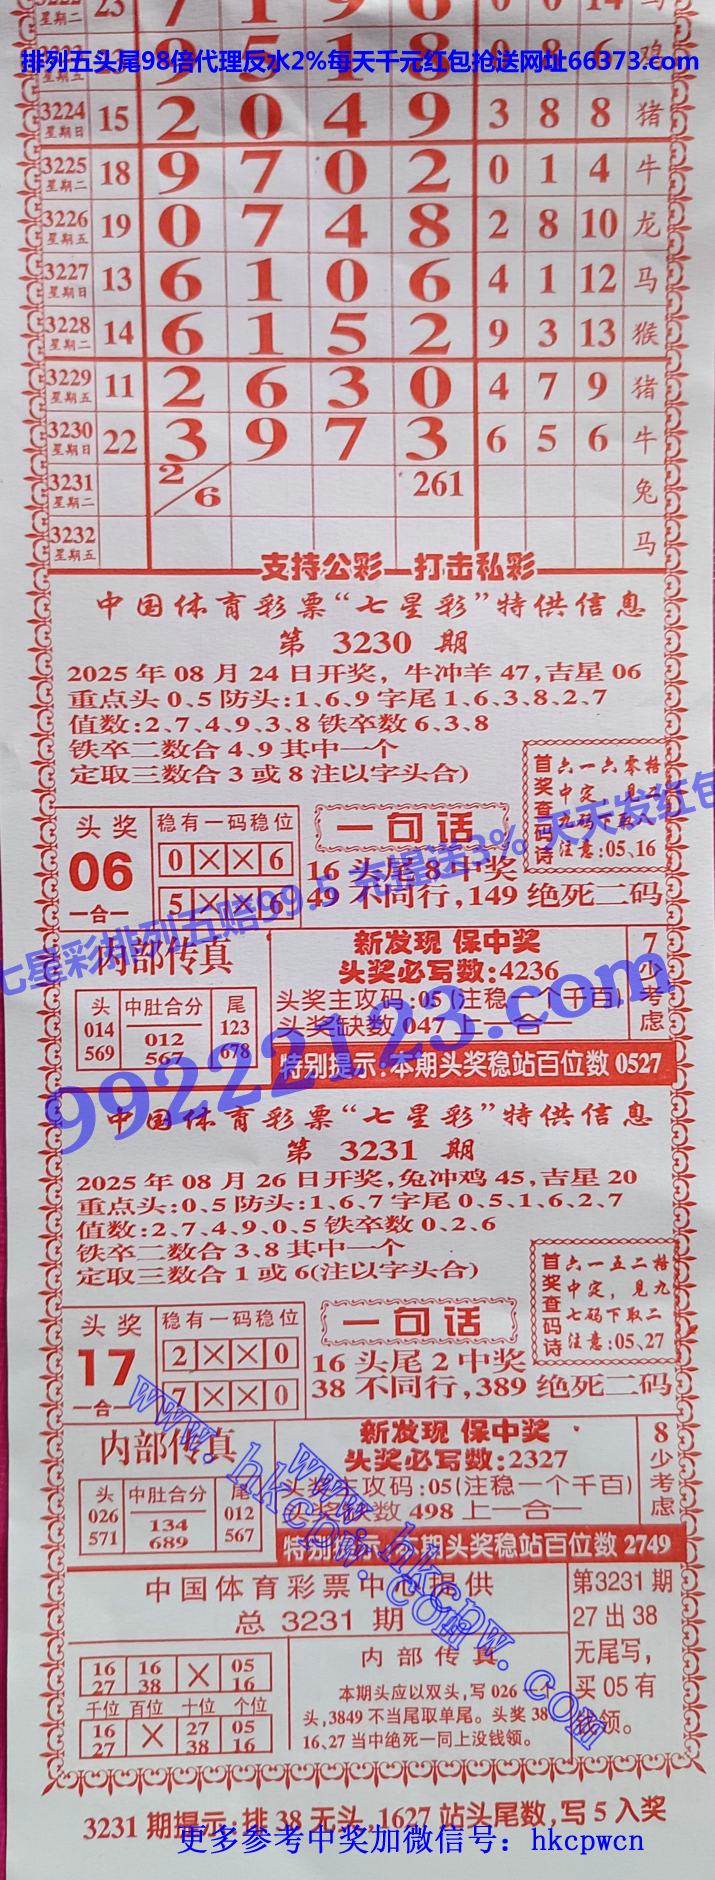 3222 星期二 23 7 1 9 6 0 0 14 马
排列五头尾98倍代理反水2%每天千元红包抢送网址66373.com
23 9 5 1 8 0 8 6 鸡
3224 星期日 15 2 0 4 9 3 8 8 猪
3225 星期二 18 9 7 0 2 0 1 4 牛
3226 星期五 19 0 7 4 8 2 8 10 龙
3227 星期日 13 6 1 0 6 4 1 12 马
3228 星期二 14 6 1 5 2 9 3 13 猴
3229 星期五 11 2 6 3 0 4 7 9 猪
3230 星期日 22 3 9 7 3 6 5 6 牛
3231 星期二 2/6 261 兔
3232 星期五 马
支持公彩 打击私彩
中国体育彩票“七星彩”特供信息
第 3230 期
2025 年 08 月 24 日开奖，牛冲羊 47,吉星 06
重点头 0、5 防头:1、6、9 字尾 1、6、3、8、2、7
值数:2、7、4、9、3、8 铁卒数 6、3、8
铁卒二数合 4、9 其中一个
定取三数合 3 或 8 注以字头合)
首奖查码诗
六一六零格
中定，见二
九码下取八
注意:05、16
头奖
06
一合一
稳有一码稳位
0 × × 6
5 × × 6
一句话
16 头尾 8 中奖
49 不同行,149 绝死二码
七星彩排列五赔99.5 充提送3% 天天发红包
内部传真
头 中肚合分 尾
014 012 123
569 567 678
新发现 保中奖
头奖必写数:4236
头奖主攻码:05(注稳一个千百)
头奖缺数 047 上一合一
7少考虑
特别提示:本期头奖稳站百位数 0527
99222123.com
中国体育彩票“七星彩”特供信息
第 3231 期
2025 年 08 月 26 日开奖,兔冲鸡 45,吉星 20
重点头:0、5 防头:1、6、7 字尾 0、5、1、6、2、7
值数:2、7、4、9、0、5 铁卒数 0、2、6
铁卒二数合 3、8 其中一个
定取三数合 1 或 6(注以字头合)
首奖查码诗
六一五二格
中定，见九
七码下取二
注意:05、27
头奖
17
一合一
稳有一码稳位
2 × × 0
7 × × 0
一句话
16 头尾 2 中奖
38 不同行,389 绝死二码
内部传真
头 中肚合分 尾
026 134 012
571 689 567
新发现 保中奖
头奖必写数:2327
头奖主攻码:05(注稳一个千百)
头奖缺数 498 上一合一
8少考虑
特别提示:本期头奖稳站百位数 2749
www.hkcpw.com
www.hkcpw.com
中国体育彩票中心提供
总 3231 期
16 16 × 05
27 38 16
千位 百位 十位 个位
16 × 27 05
27 38 16
内部传真
本期头应以双头,写 026 一个
头,3849 不当尾取单尾。头奖 38
16、27 当中绝死一同上没钱领。
第3231 期
27 出 38
无尾写，
买 05 有
钱领。
3231 期提示:排 38 无头,1627 站头尾数,写 5 入奖
更多参考中奖加微信号：hkcpwcn